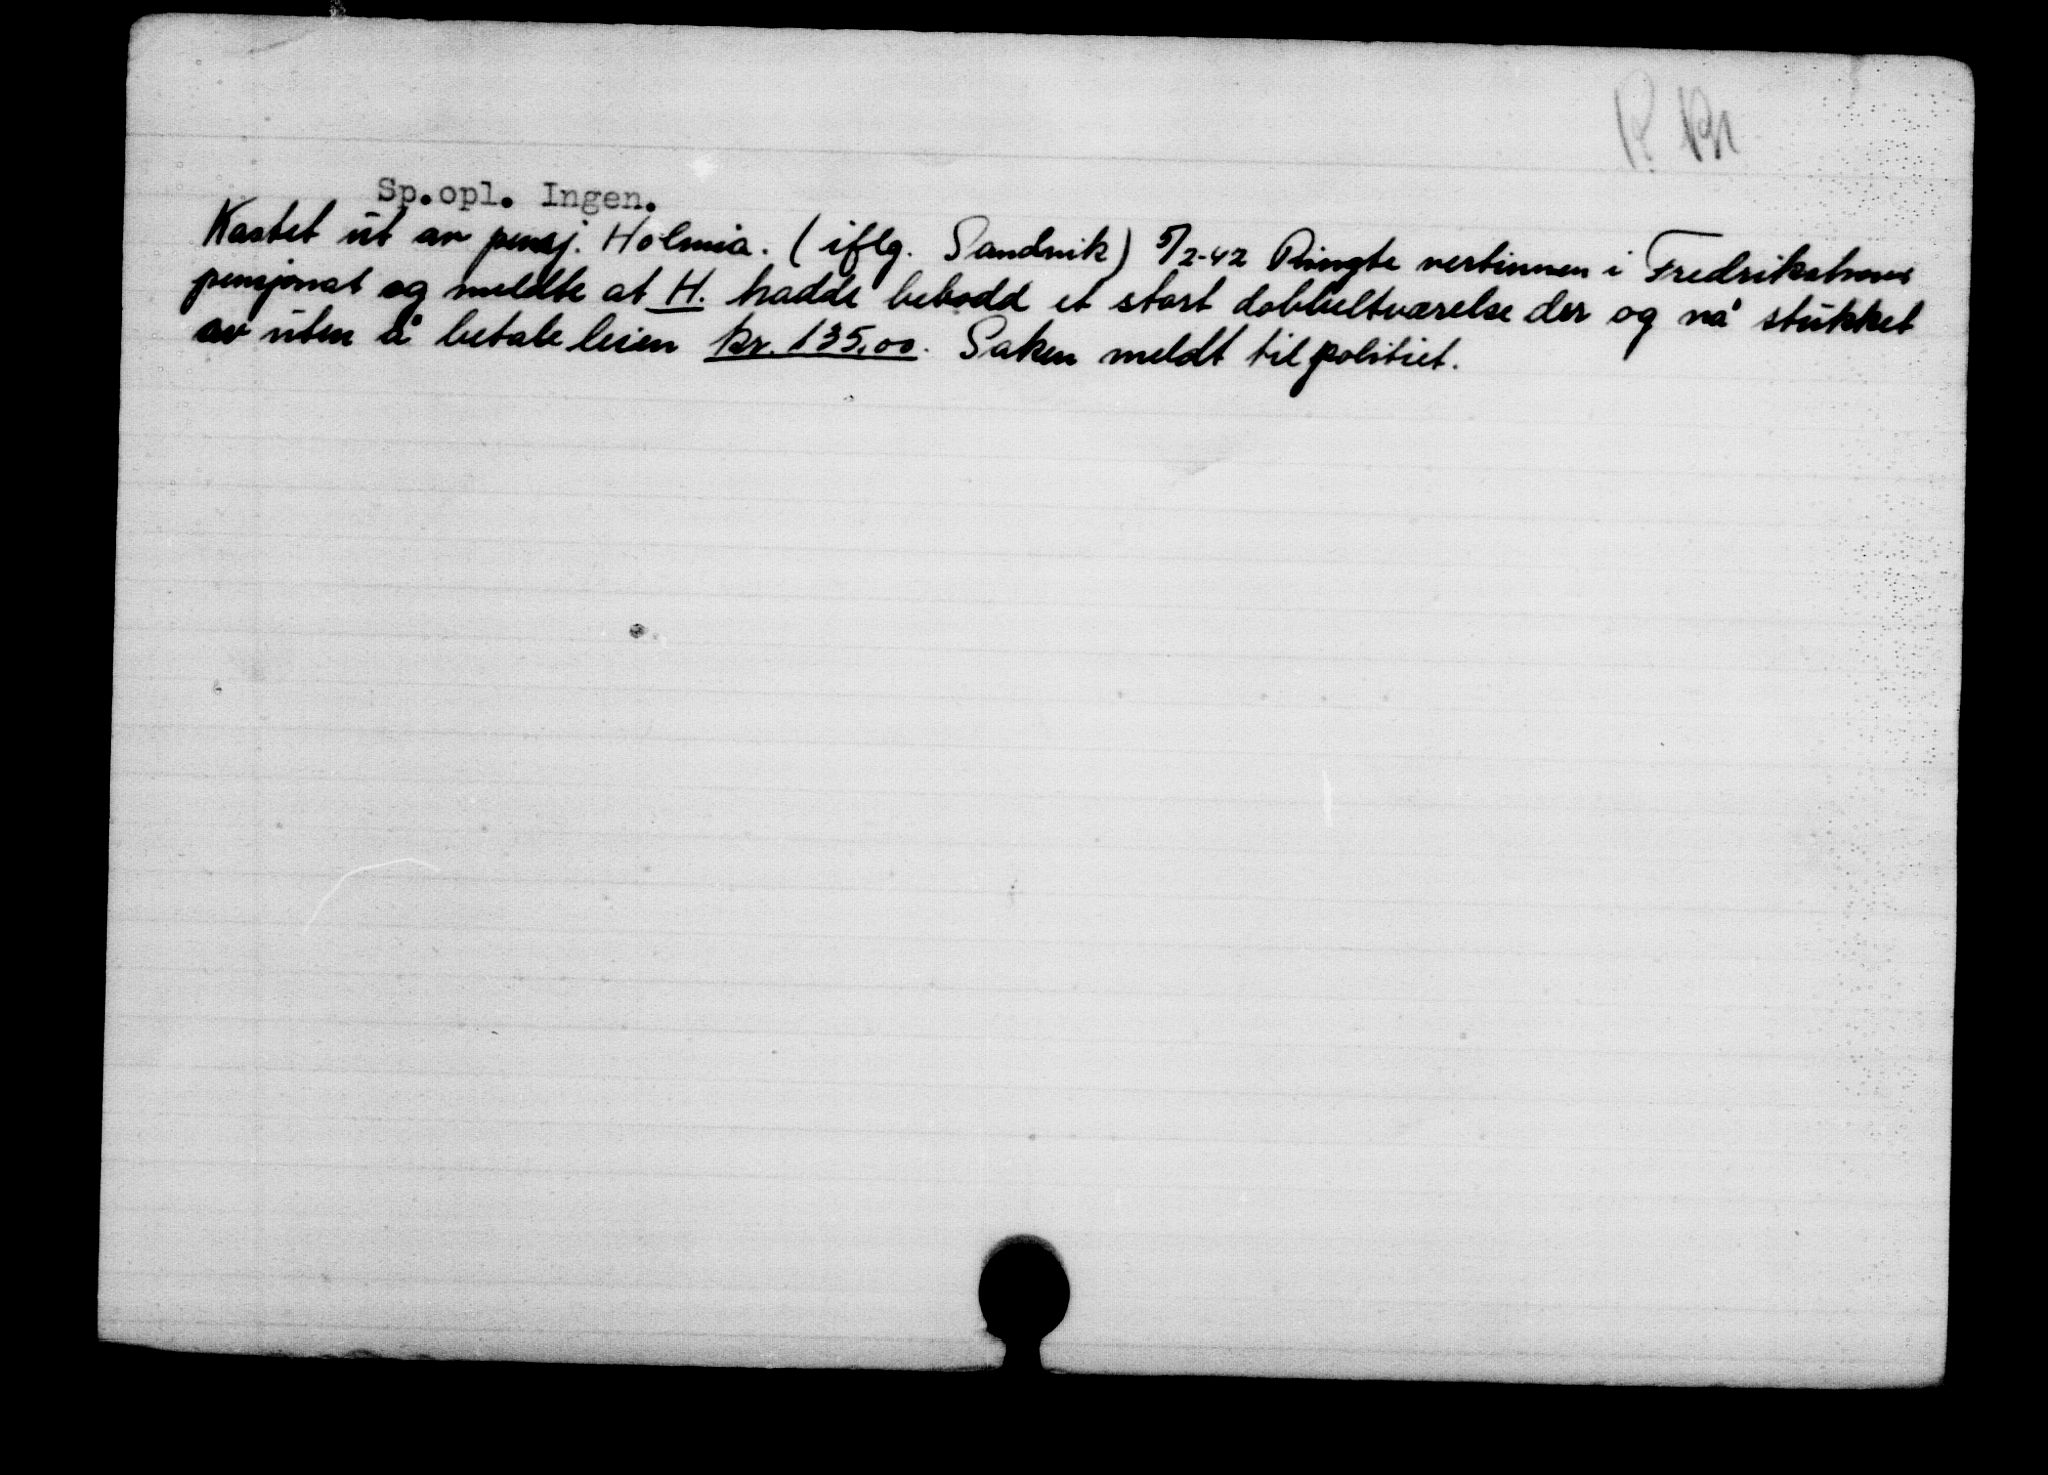 Sp.opl. Ingen.
Kastet ut av pensj. Holmia. (iflg. Sandvik) 5/2-42 Ringte vertinnen i
pensjonat og meldte at H. hadde bebodd et stort dobbeltværelse der og nå stukket
av uten å betale leien kr. 135,00. Saken meldt til politiet.